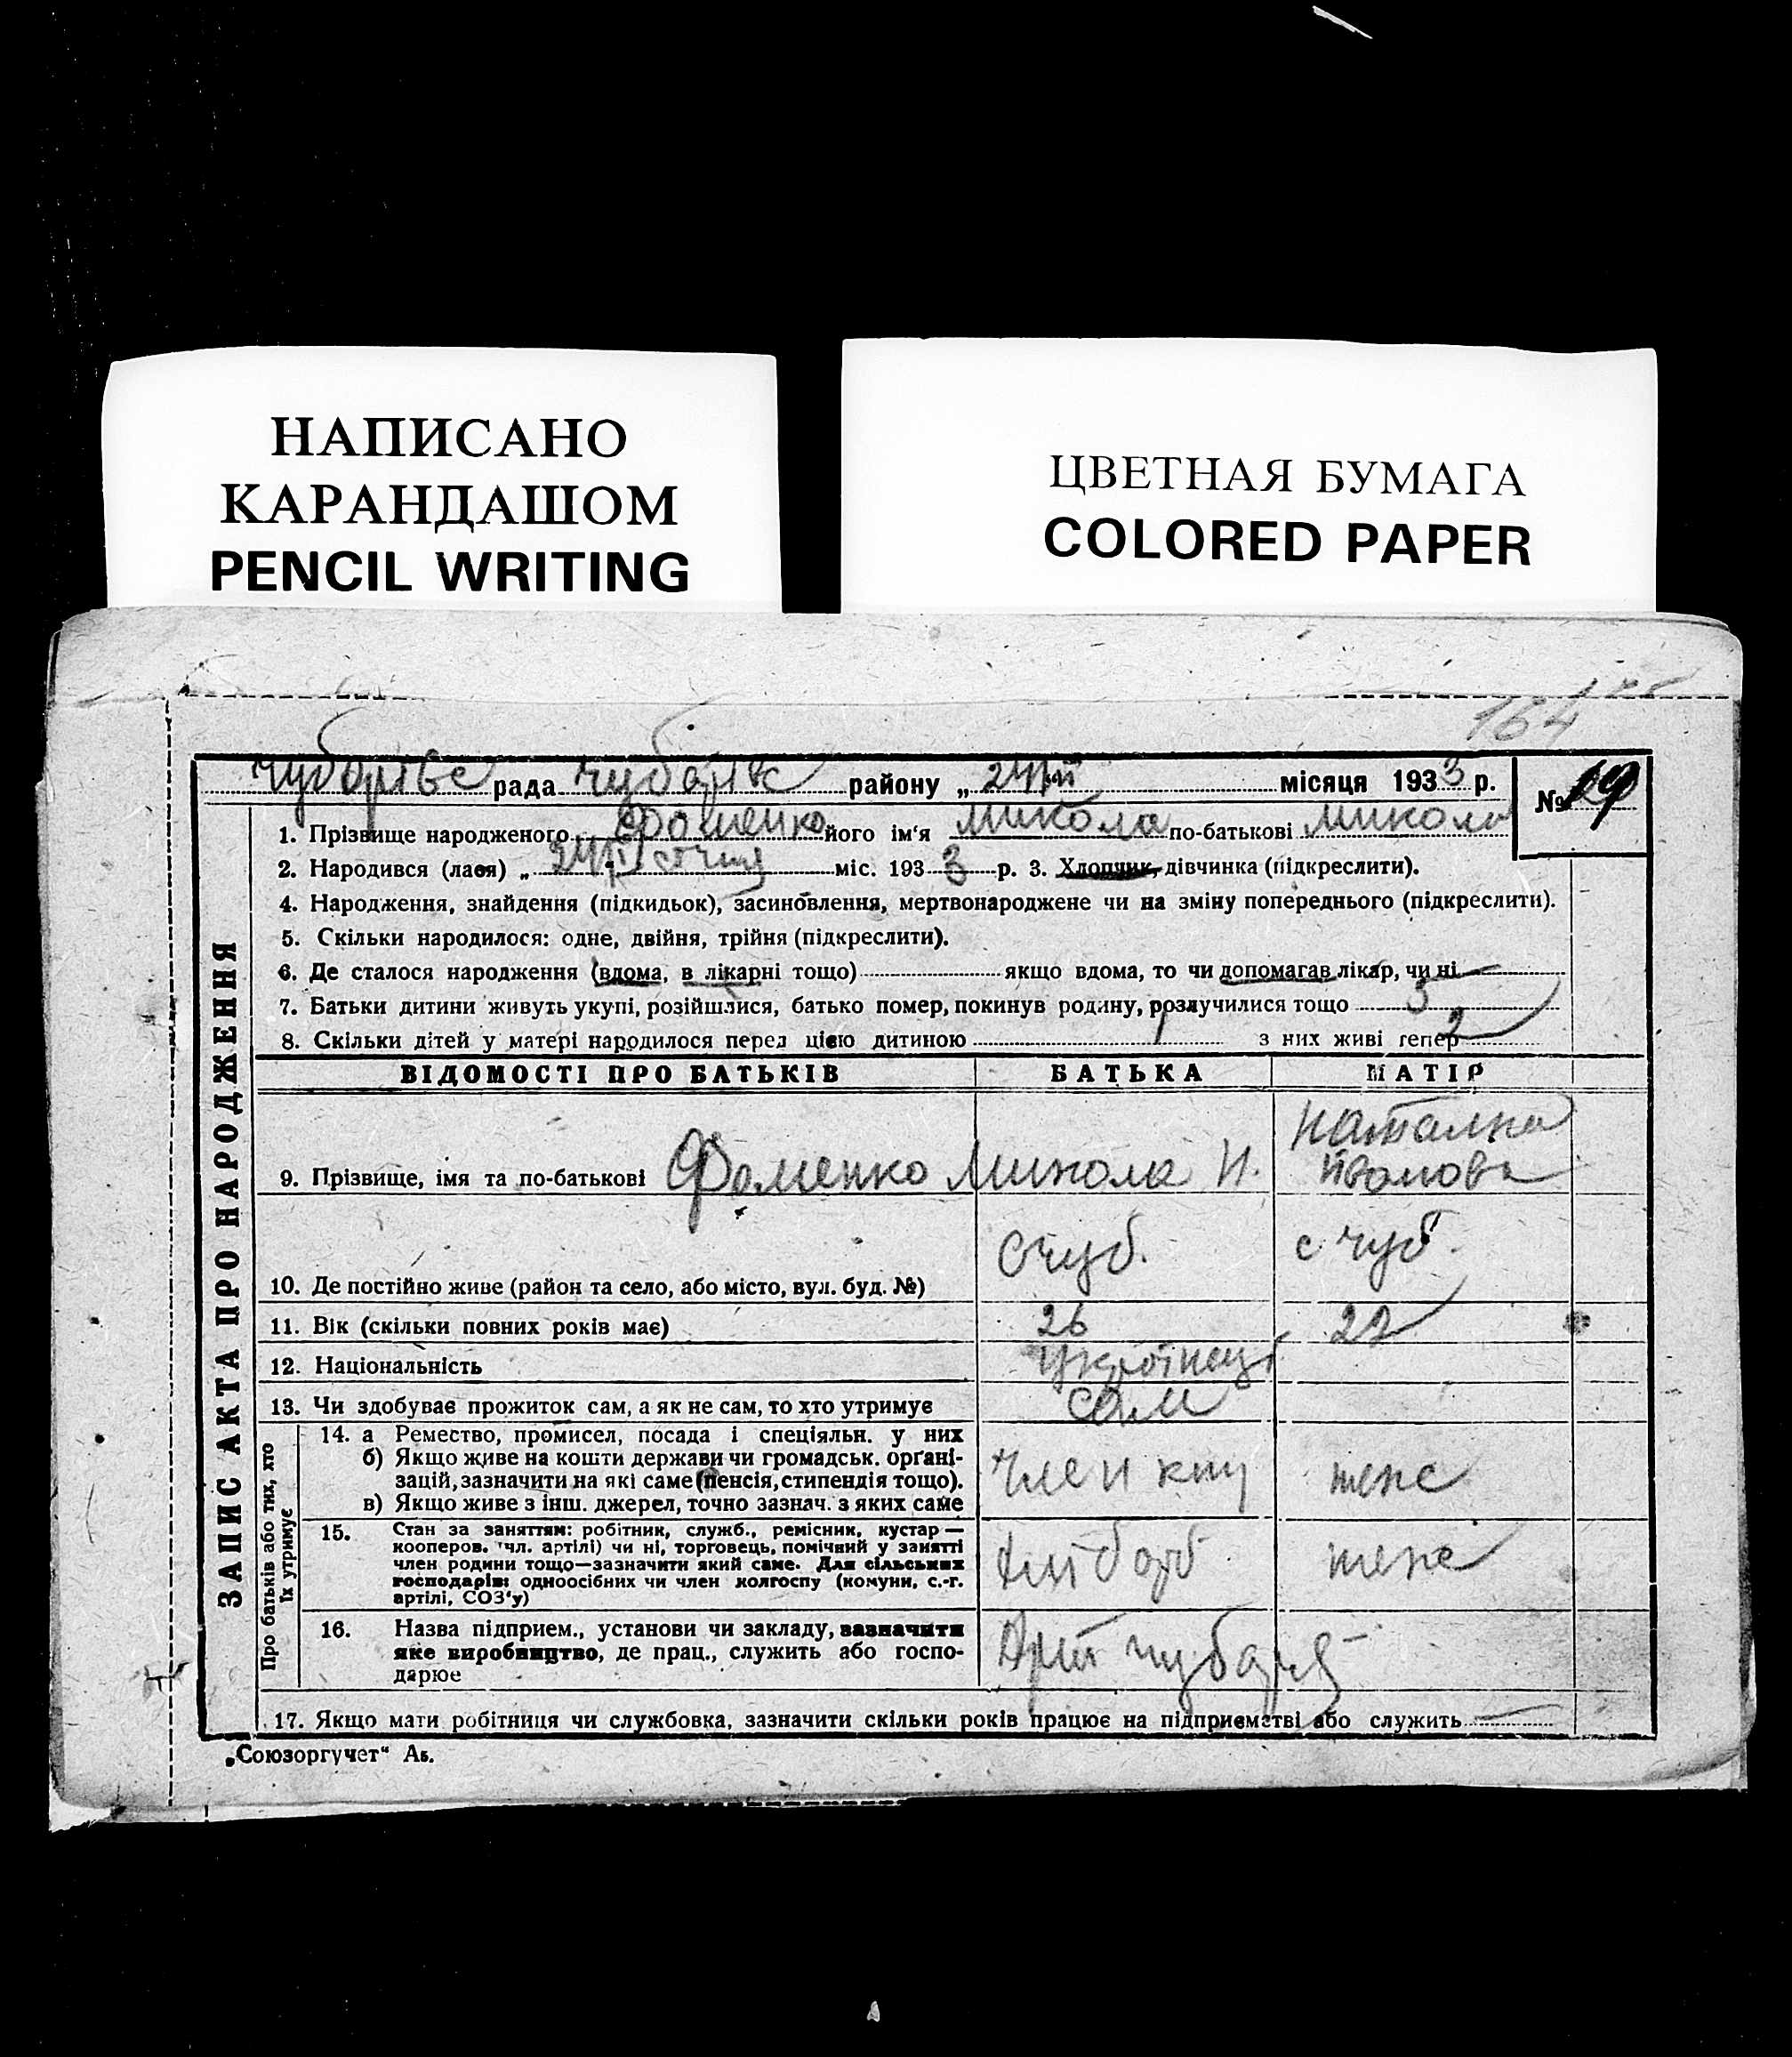 НАПИСАНО
КАРАНДАШОМ
PENCIL WRITING
ЦВЕТНАЯ БУМАГА
COLORED PAPER
164
рада района „ місяця 1933 р.
№ 19
1. Прізвище народженого Фоменко його ім‘я Микола по-батькові Микола
2. Народився (лася) „ міс. 1933 р. 3. Хлопчик, дівчинка (підкреслити).
4. Народження, знайдення (підкидьок), засиновлення, мертвонароджене чи на зміну попереднього (підкреслити).
5. Скільки народилося: одне, двійня, трійня (підкреслити).
6. Де сталося народження (вдома, в лікарні тощо) якщо вдома, то чи допомагав лікар, чи ні
7. Батьки дитини живуть укупі, розійшлися, батько помер, покинув родину, розлучилися тощо 3
8. Скільки дітей у матері народилося перед цією дитиною 1 з них живі тепер 2
ВІДОМОСТІ ПРО БАТЬКІВ БАТЬКА МАТІР
9. Прізвище, імя та по-батькові Фоменко Микола И. Наталка
10. Де постійно живе (район та село, або місто, вул. буд. №) с чуб. с чуб.
11. Вік (скільки повних років має) 26 22
12. Національність Українець
13. Чи здобуває прожиток сам, а як не сам, то хто утримує сам
14. а Ремество, промисел, посада і спеціяльн. у них
б) Якщо живе на кошти держави чи громадськ. органі-
зацій, зазначити на які саме (пенсія, стипендія тощо).
в) Якщо живе з інш. джерел, точно зазнач. з яких саме
член теже
15. Стан за заняттям: робітник, служб., ремісник, кустар —
кооперов. чл. артілі) чи ні, торговець, помічний у занятті
член родини тощо—зазначити який саме. Для сільських
господарів: одноосібних чи член колгоспу (комуни, с.-г.
артілі, СОЗ‘у)
теже
16. Назва підприєм., установи чи закладу, зазначити
яке виробництво, де прац., служить або госпо-
дарює
17. Якщо мати робітниця чи службовка, зазначити скільки років працює на підприємстві або служить
ЗАПИС АКТА ПРО НАРОДЖЕННЯ
Про батьків або тих, хто
їх утримує
„Союзоргучет“ Аб.